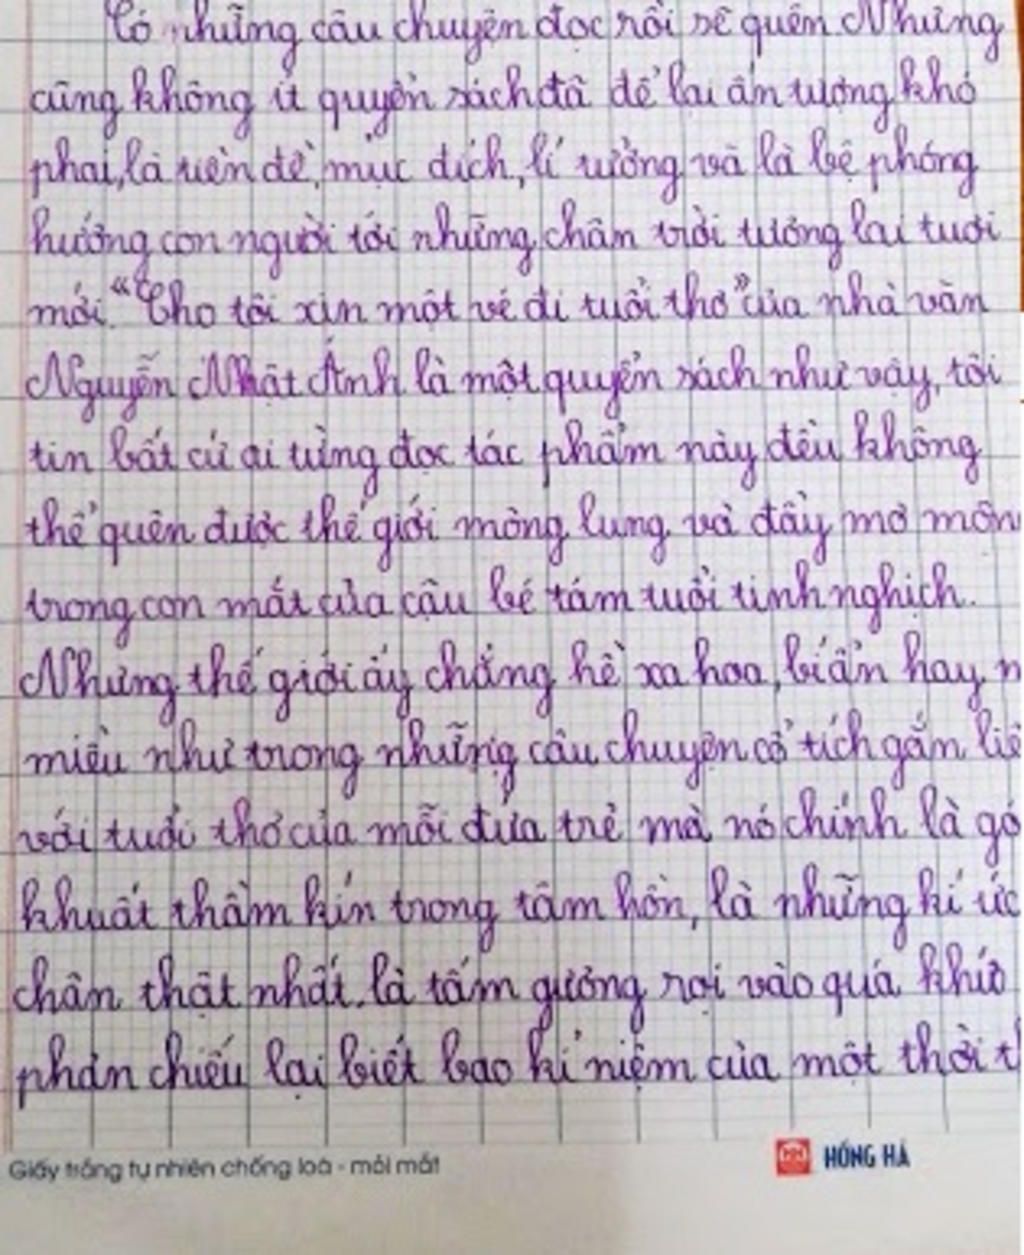 Có những câu chuyện đọc rồi sẽ quên Nhưng
cũng không ít quyển sách đã để lại ấn tượng khó
phai, là tiền đề, mục đích, lí tưởng và là bệ phóng
hướng con người tới những chân trời tương lai tươi
mới. "Cho tôi xin một vé đi tuổi thơ" của nhà văn
Nguyễn Nhật Ánh là một quyển sách như vậy, tôi
tin bất cứ ai từng đọc tác phẩm này đều không
thể quên được thế giới mông lung và đầy mơ mộn
trong con mắt của cậu bé tám tuổi tinh nghịch.
Nhưng thế giới ấy chẳng hề xa hoa, bí ẩn hay
miều như trong những câu chuyện cổ tích gắn liề
với tuổi thơ của mỗi đứa trẻ mà nó chính là gó
khuất thầm kín trong tâm hồn, là những kí ức
chân thật nhất, là tấm gương rọi vào quá khứ
phản chiếu lại biết bao kỉ niệm của một thời
Giấy trắng tự nhiên chống loá - mỏi mắt
HỒNG HÀ